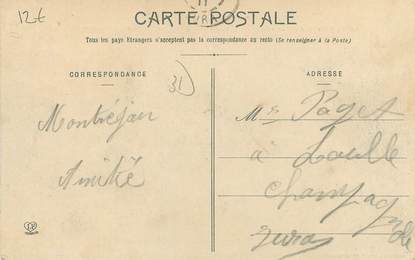 12€
CARTE POSTALE
Tous les pays Etrangers n'acceptent pas la correspondance au recto (Se renseigner à la Poste)
CORRESPONDANCE
ADRESSE
31
Montréjau
Amitié
M
Paget
à Loulle
Champagnole
Jura